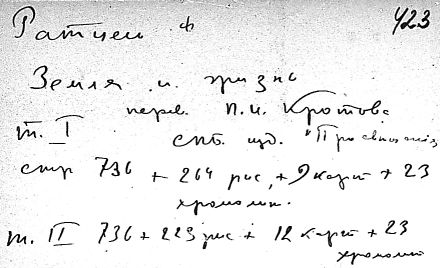 Ратцель Ф 423
Земля и жизнь
перев. П.И. Кротова
т. I спб. изд. "Просвещение
стр 736 + 264 рис, + 9 карт + 23
хромолит.
т. II 736 + 223 рис + 12 карт + 23
хромолит